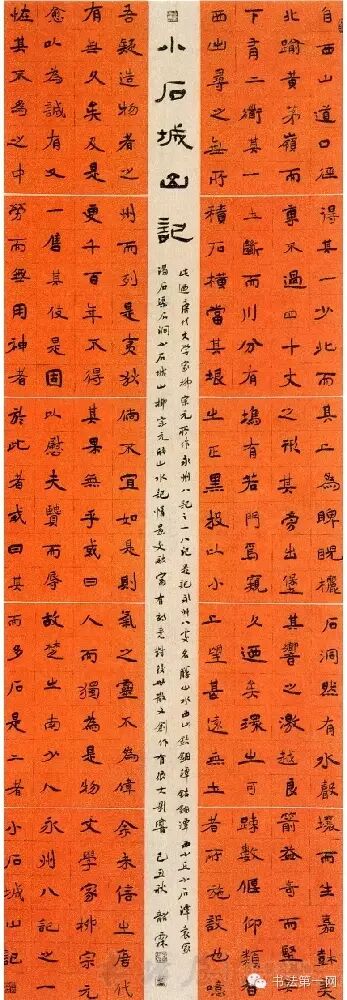 自西山道口徑
北踰黃茅嶺而
下有二衢其一
西出尋之無所
得其一少北而
東不過四十丈
土斷而川分有
積石橫當其垠
其上為睥睨欐
之形其旁出堡
塢有若門焉窺
之正黑投以小
石洞然有水聲
其響之激越良
久迺矣環之可
上望甚遠無土
壤而生嘉樹美
箭益奇而堅其
疎數偃仰類智
者所施設也噫
小石城山記
此迺唐代文學家柳宗元所作永州八記之一八記是記永州八處名勝山水西山鈷鉧潭鈷鉧潭西小丘小石潭袁家
渴石渠石澗小石城山柳宗元的山水記情景交融富有散文創作有很大影響 己丑秋 韶霖
吾疑造物者之
有無久矣及是
愈以為誠有又
怪其不為之中
州而列是夷狄
更千百年不得
一售其伎是固
勞而無用神者
倘不宜如是則
其果無乎或曰
以慰夫賢而辱
於此者或曰其
氣之靈不為偉
人而獨為是物
故楚之南少人
而多石是二者
余未信之唐代
文學家柳宗元
永州八記之一
小石城山記
书法第一网